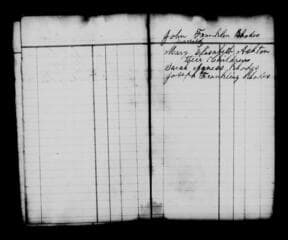 John Franklin Rhodes
married
Mary Elizabeth Ashton
Their Children
Sarah Agness Rhodes
Joseph Frankling Rhodes